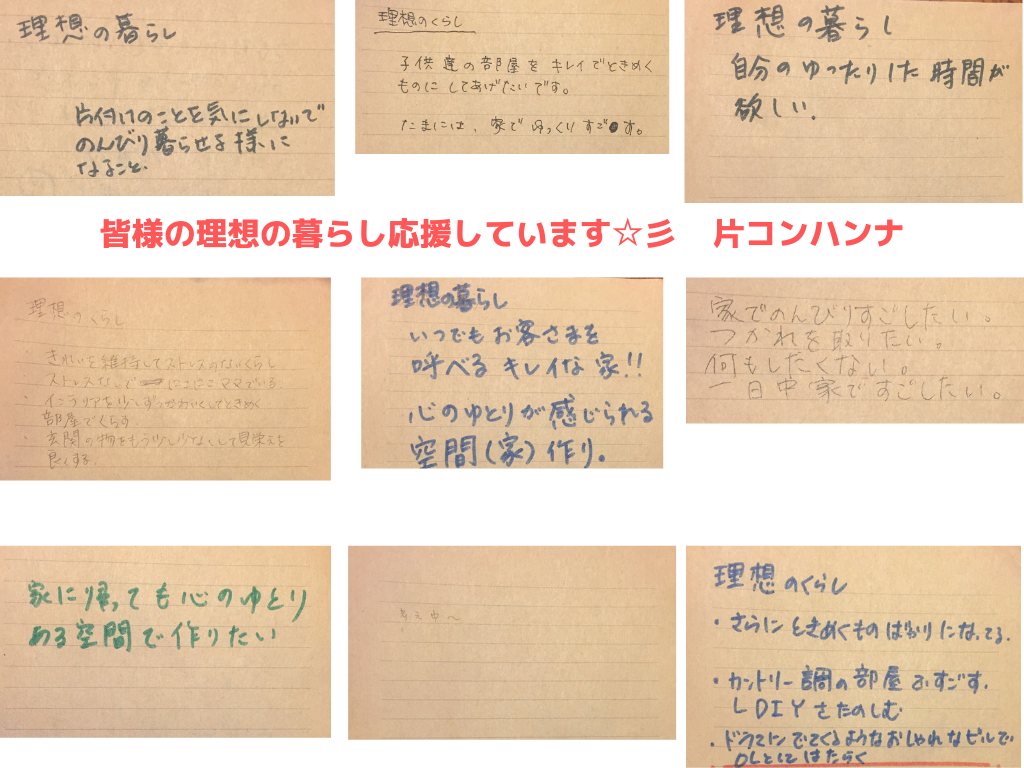 理想の暮らし
片付けのことを気にしないで
のんびり暮らせる様に
なること.
理想のくらし
子供達の部屋をキレイでときめく
ものにしてあげたいです。
たまには、家でゆっくりすごす。
理想の暮らし
自分のゆったりした時間が
欲しい.
皆様の理想の暮らし応援しています☆彡 片コンハンナ
理想のくらし
・きれいを維持してストレスのないくらし
ストレスなしでにこにこママでいる
・インテリアを少しずつかわいくしてときめく
部屋でくらす
・玄関の物をもう少し少なくして見栄えを
良くする.
理想の暮らし
いつでもお客さまを
呼べるキレイな家!!
心のゆとりが感じられる
空間(家)作り.
家でのんびりすごしたい。
つかれを取りたい。
何もしたくない。
一日中家ですごしたい。
家に帰っても心のゆとり
ある空間で作りたい
考え中〜
理想のくらし
・さらにときめくものばかりになってる.
・カントリー調の部屋ですごす.
DIYをたのしむ
・ドラマにでてくるようなおしゃれなビルで
OLとしてはたらく